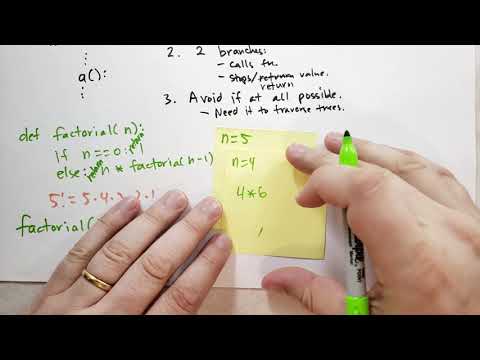 2. 2 branches:
- Calls fn.
- Stops/return value.
return
a():
3. Avoid if at all possible.
- Need it to traverse trees.
def factorial(n):
if n==0: return 1
else: return n * factorial(n-1)
5! = 5·4·3·2·1
factorial(
n=5
n=4
4*6